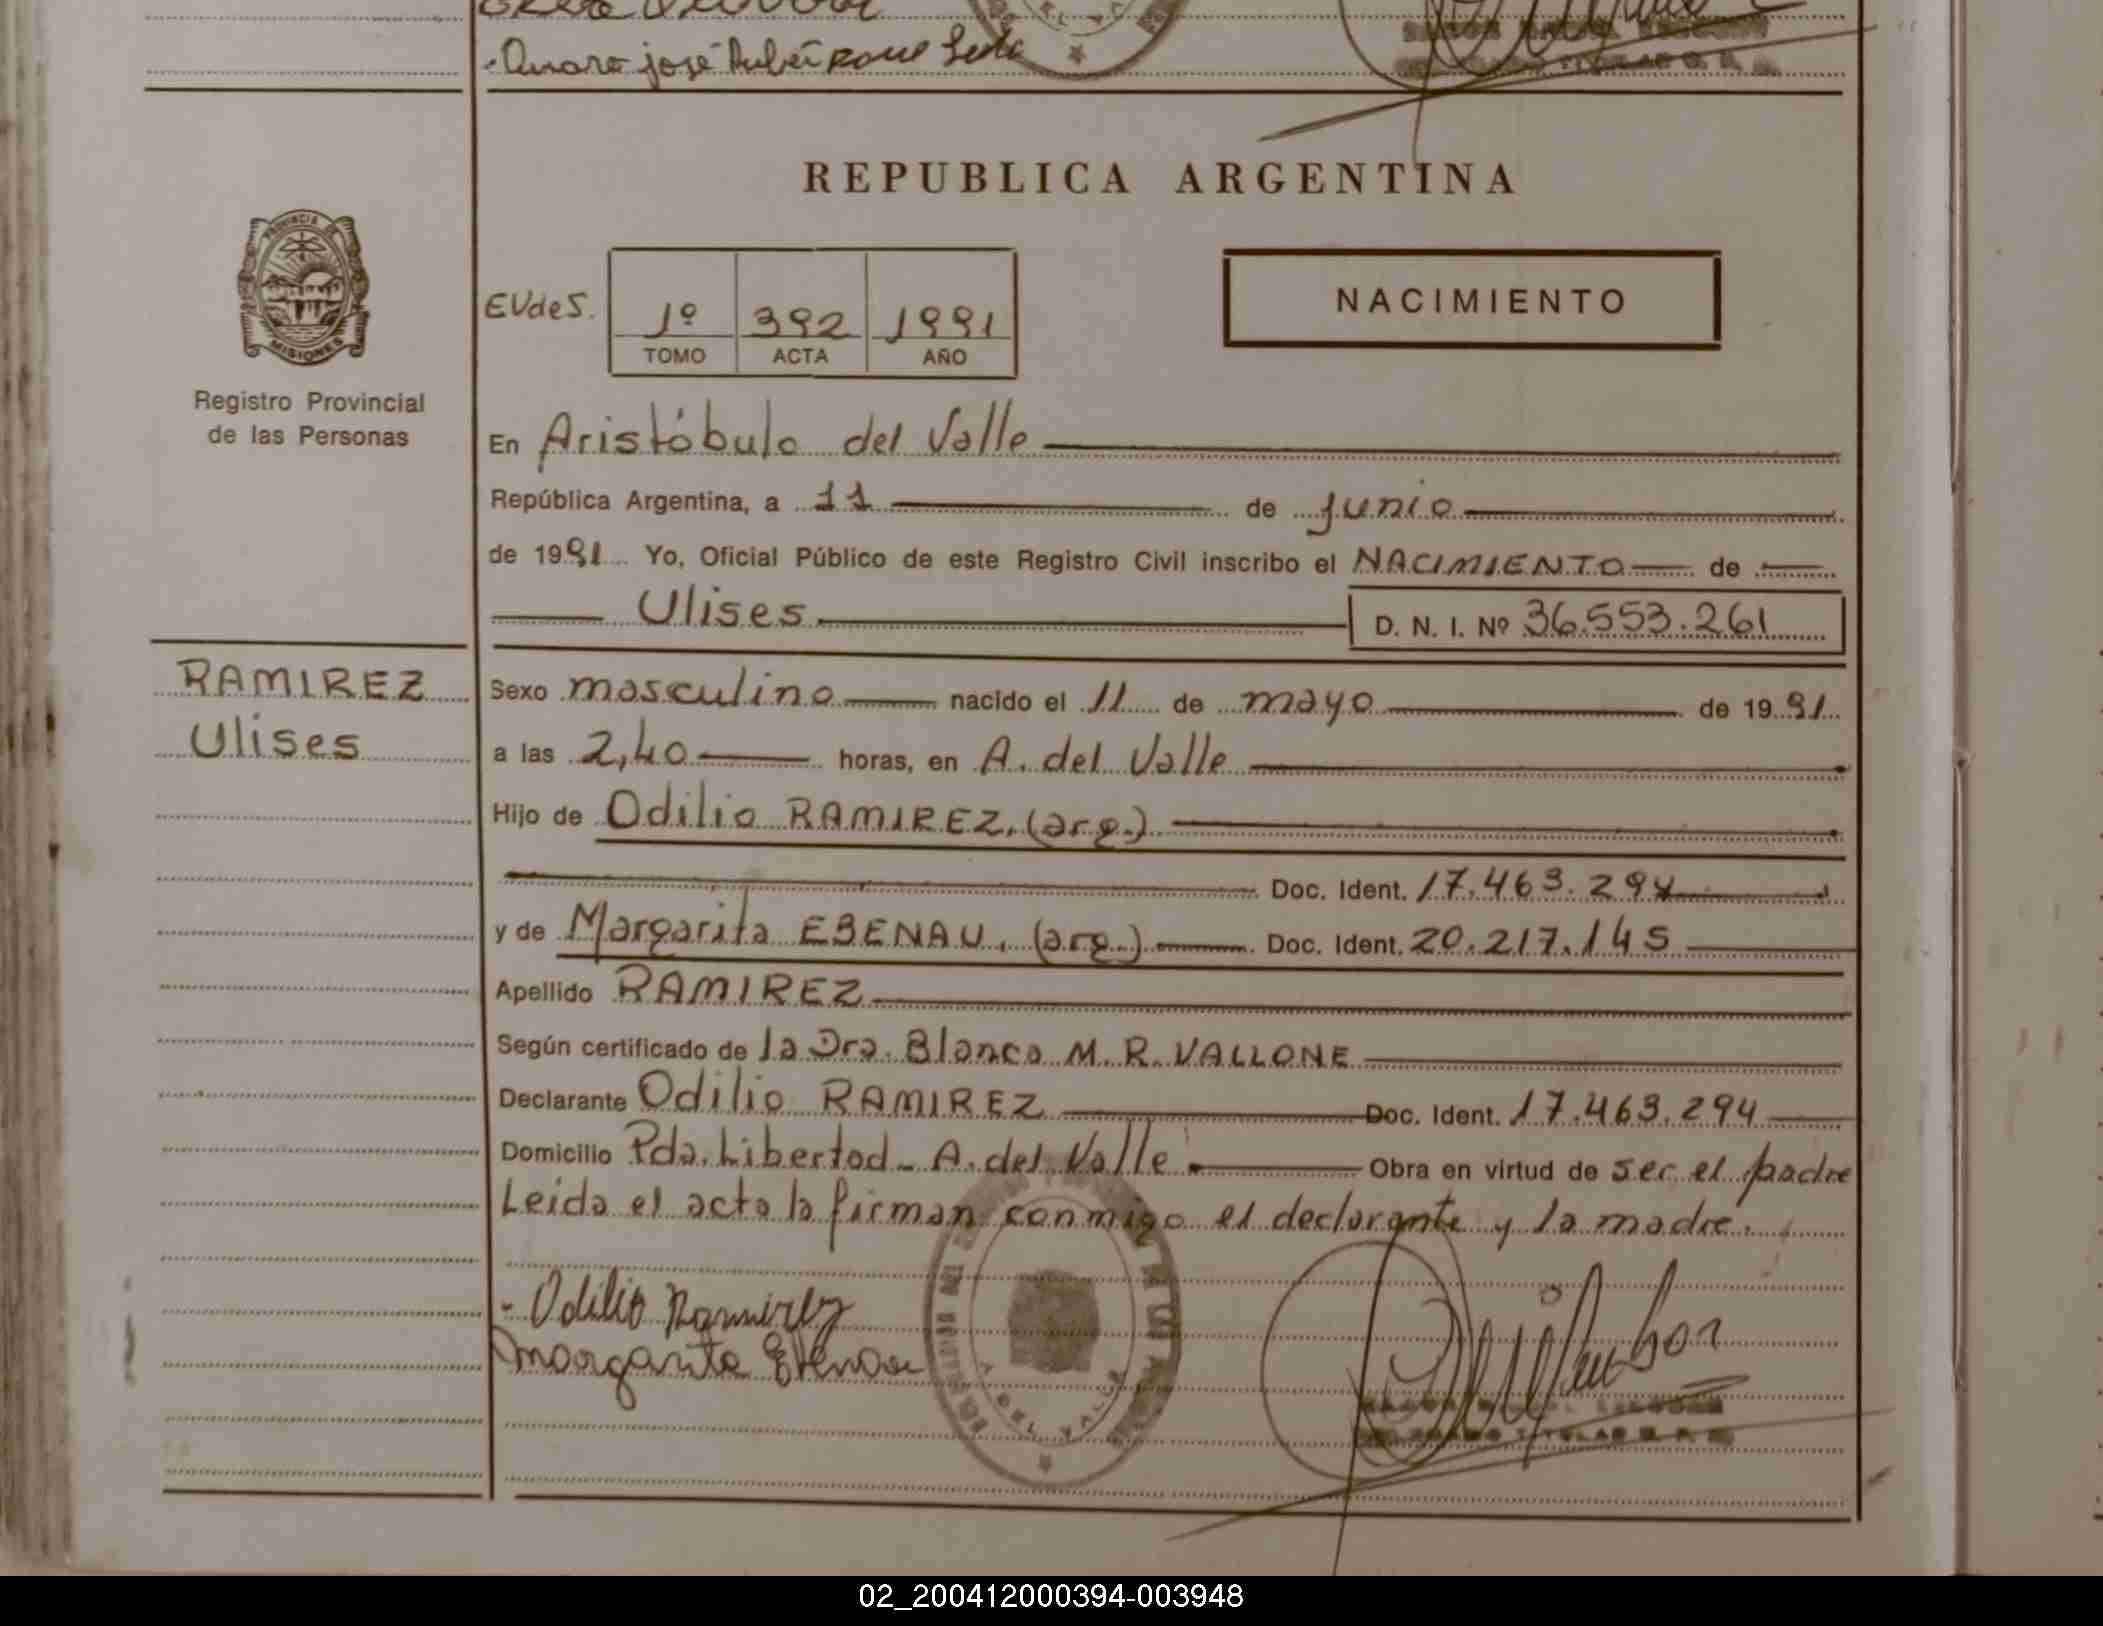 José Rubén
REPUBLICA ARGENTINA
PROVINCIA DE
MISIONES
Registro Provincial
de las Personas
EVdeS.
1º 392 1991
TOMO ACTA AÑO
NACIMIENTO
En Aristóbulo del Valle
República Argentina, a 11 de junio
de 1991 Yo, Oficial Público de este Registro Civil inscribo el NACIMIENTO de
Ulises D. N. I. Nº 36.553.261
RAMIREZ
Ulises
Sexo masculino nacido el 11 de mayo de 1991
a las 2,40 horas, en A. del Valle
Hijo de Odilio RAMIREZ, (arg.)
Doc. Ident. 17.463.294
y de Margarita EBENAU, (arg.) Doc. Ident. 20.217.145
Apellido RAMIREZ
Según certificado de la Dra. Blanca M. R. VALLONE
Declarante Odilio RAMIREZ Doc. Ident. 17.463.294
Domicilio Pda. Libertad - A. del Valle Obra en virtud de ser el padre
Leida el acta la firman conmigo el declarante y la madre.
Odilio Ramirez
Margarita Ebenau
A. DEL VALLE
02_200412000394-003948